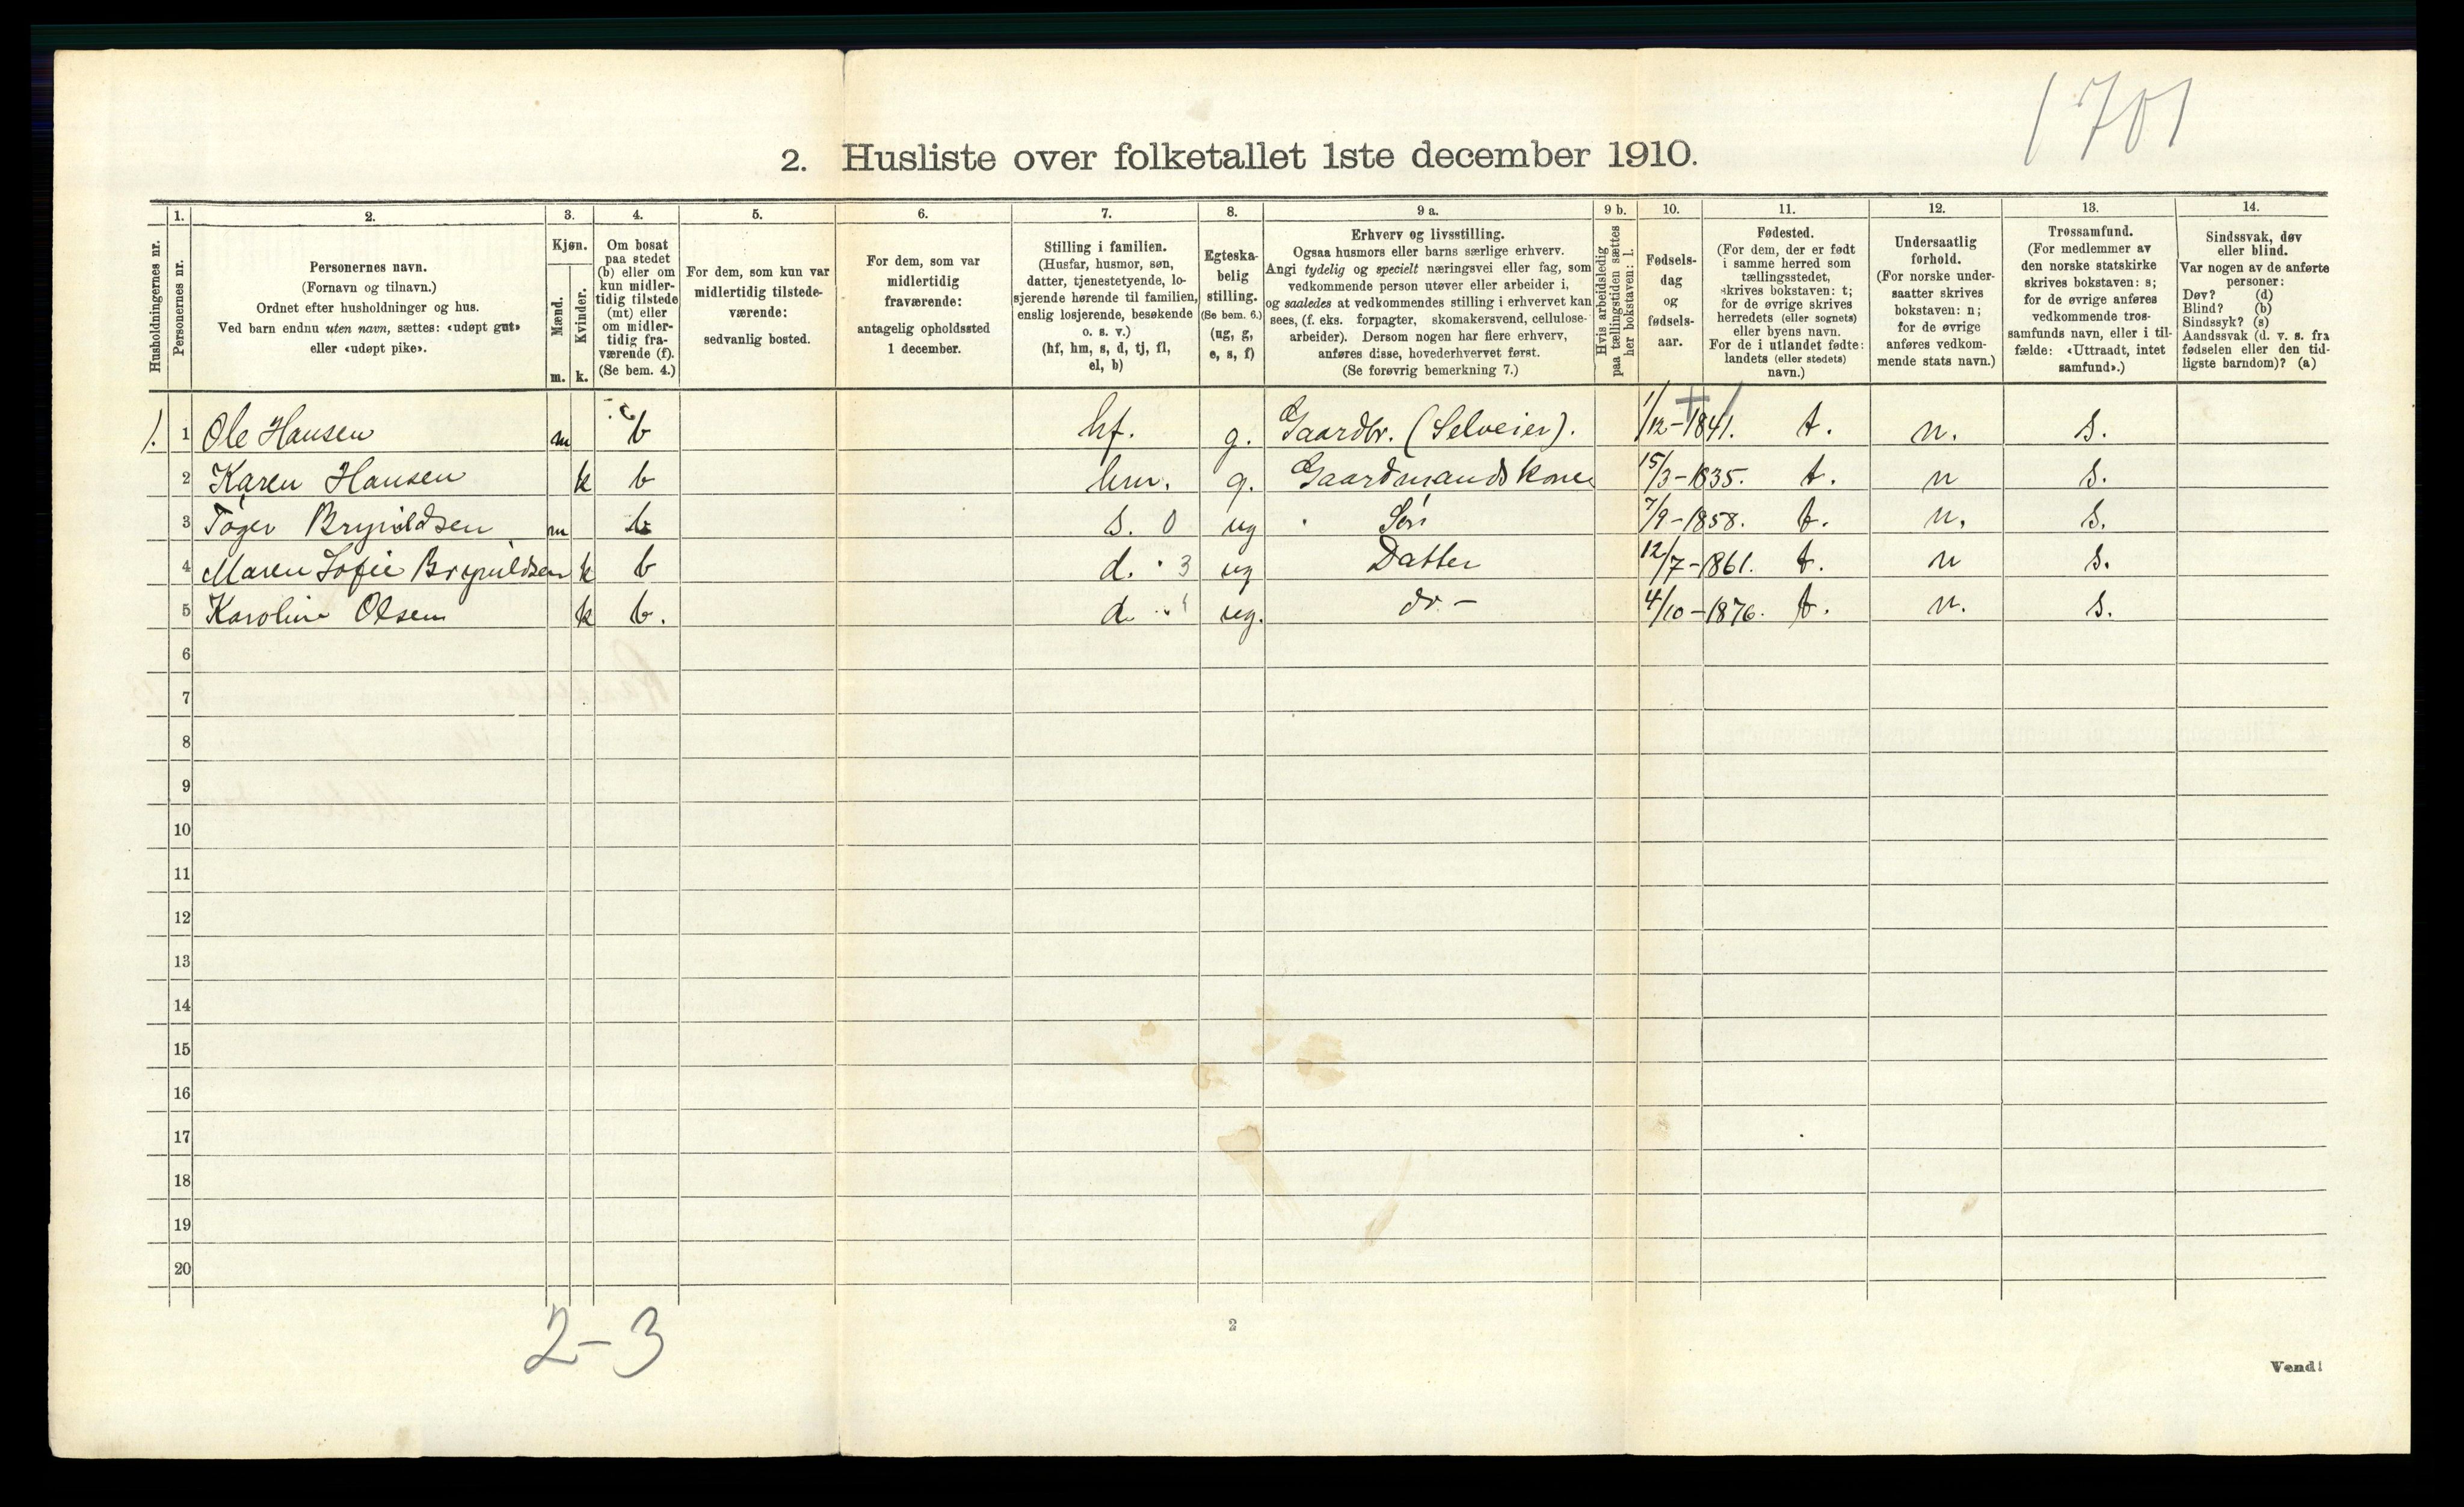 1701
2. Husliste over folketallet 1ste december 1910.
Husholdningernes nr.
1. Personernes nr.
2.
Personernes navn.
(Fornavn og tilnavn.)
Ordnet efter husholdninger og hus.
Ved barn endnu uten navn, sættes: «udøpt gut»
eller «udøpt pike».
3.
Kjøn.
Mænd. Kvinder.
m. k.
4.
Om bosat
paa stedet
(b) eller om
kun midler-
tidig tilstede
(mt) eller
om midler-
tidig fra-
værende (f).
(Se bem. 4.)
5.
For dem, som kun var
midlertidig tilstede-
værende:
sedvanlig bosted.
6.
For dem, som var
midlertidig
fraværende:
antagelig opholdssted
1 december.
7.
Stilling i familien.
(Husfar, husmor, søn,
datter, tjenestetyende, lo-
sjerende hørende til familien,
enslig losjerende, besøkende
o. s. v.)
(hf, hm, s, d, tj, fl,
el, b)
8.
Egteska-
belig
stilling.
(Se bem. 6.)
(ug, g,
e, s, f)
9 a.
Erhverv og livsstilling.
Ogsaa husmors eller barns særlige erhverv.
Angi tydelig og specielt næringsvei eller fag, som
vedkommende person utøver eller arbeider i,
og saaledes at vedkommendes stilling i erhvervet kan
sees, (f. eks. forpagter, skomakersvend, cellulose-
arbeider). Dersom nogen har flere erhverv,
anføres disse, hovederhvervet først.
(Se forøvrig bemerkning 7.)
9 b.
Hvis arbeidsledig
paa tællingstiden sættes
her bokstaven: l.
10.
Fødsels-
dag
og
fødsels-
aar.
11.
Fødested.
(For dem, der er født
i samme herred som
tællingsstedet,
skrives bokstaven: t;
for de øvrige skrives
herredets (eller sognets)
eller byens navn.
For de i utlandet fødte:
landets (eller stedets)
navn.)
12.
Undersaatlig
forhold.
(For norske under-
saatter skrives
bokstaven: n;
for de øvrige
anføres vedkom-
mende stats navn.)
13.
Trossamfund.
(For medlemmer av
den norske statskirke
skrives bokstaven: s;
for de øvrige anføres
vedkommende tros-
samfunds navn, eller i til-
fælde: «Uttraadt, intet
samfund».)
14.
Sindssvak, døv
eller blind.
Var nogen av de anførte
personer:
Døv? (d)
Blind? (b)
Sindssyk? (s)
Aandssvak (d. v. s. fra
fødselen eller den tid-
ligste barndom)? (a)
1. 1 Ole Hansen m b hf. g. Gaardbr. (Selveier). 1/12-1841. t. n. s.
2 Karen Hansen k b hm. g. Gaardmandskone 15/3-1835. t. n s.
3 Tøger Brynildsen m b s. 0 ug Søn 7/9-1858. t. n. s.
4 Maren Sofie Brynildsen k b d. 3 ug Datter 12/7-1861. t. n s.
5 Karoline Olsen k b. d ug. do - 4/10-1876. t. n. s.
6
7
8
9
10
11
12
13
14
15
16
17
18
19
20
2-3
2
Vend!